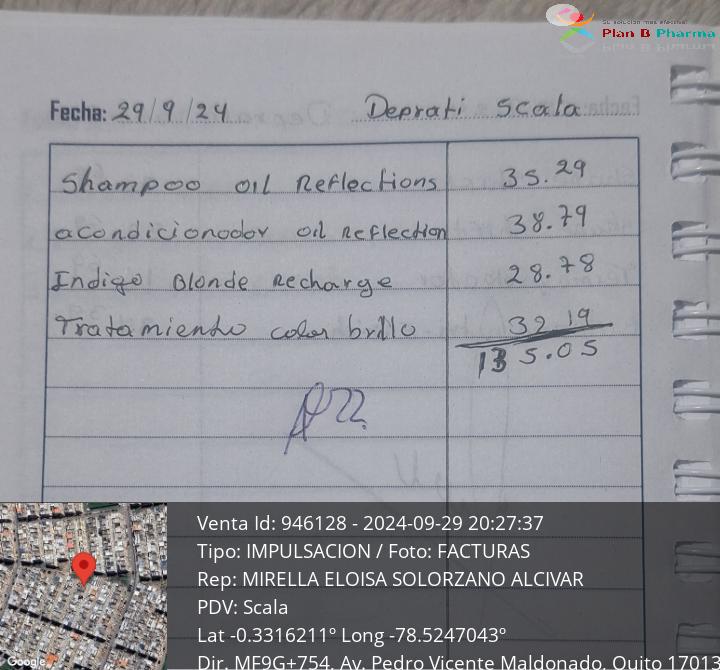 Su solución más efectiva!
Plan B Pharma
Fecha: 29/9/24 Deprati Scala
Shampoo oil Reflections 35.29
acondicionador oil Reflection 38.79
Indigo Blonde Recharge 28.78
Tratamiento color brillo 32 19
135.05
Venta Id: 946128 - 2024-09-29 20:27:37
Tipo: IMPULSACION / Foto: FACTURAS
Rep: MIRELLA ELOISA SOLORZANO ALCIVAR
PDV: Scala
Lat -0.3316211° Long -78.5247043°
Dir. MF9G+754, Av. Pedro Vicente Maldonado, Quito 17013
Google